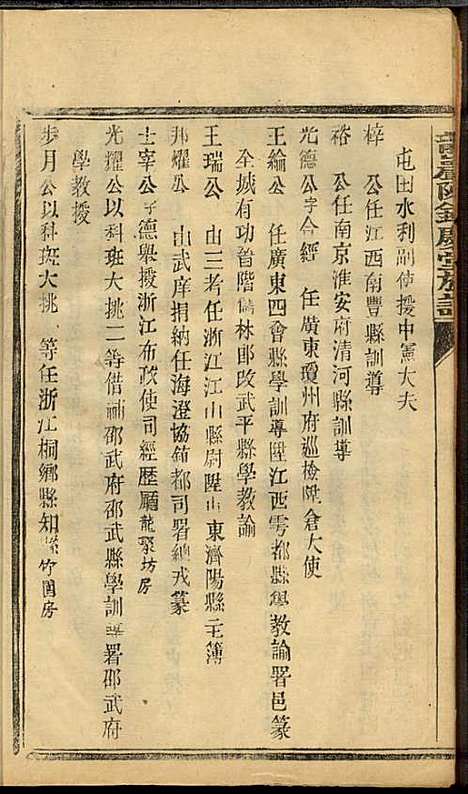 屯田水利副使授中憲大夫
梓 公任江西南豐縣訓導
裕 公任南京淮安府清河縣訓導
光德公字合經 任廣東瓊州府巡檢陞倉大使
王綸公 任廣東四會縣學訓導陞江西雩都縣學教諭署邑篆
全城有功晉階儒林郎改武平縣學教諭
王瑞公 由三考任浙江江山縣尉陞山東濟陽縣主簿
邦耀公 由武庠捐納任海澄協鎮都司署總戎篆
士宰公字德舉授浙江布政使司經歷廳龍聚坊房
光耀公以科班大挑二等借補邵武府邵武縣學訓導署邵武府
學教授
步月公以科班大挑一等任浙江桐鄉縣知縣竹園房